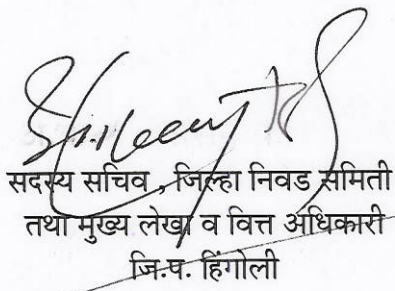 सदस्य सचिव , जिल्हा निवड समिती
तथा मुख्य लेखा व वित्त अधिकारी
जि.प. हिंगोली